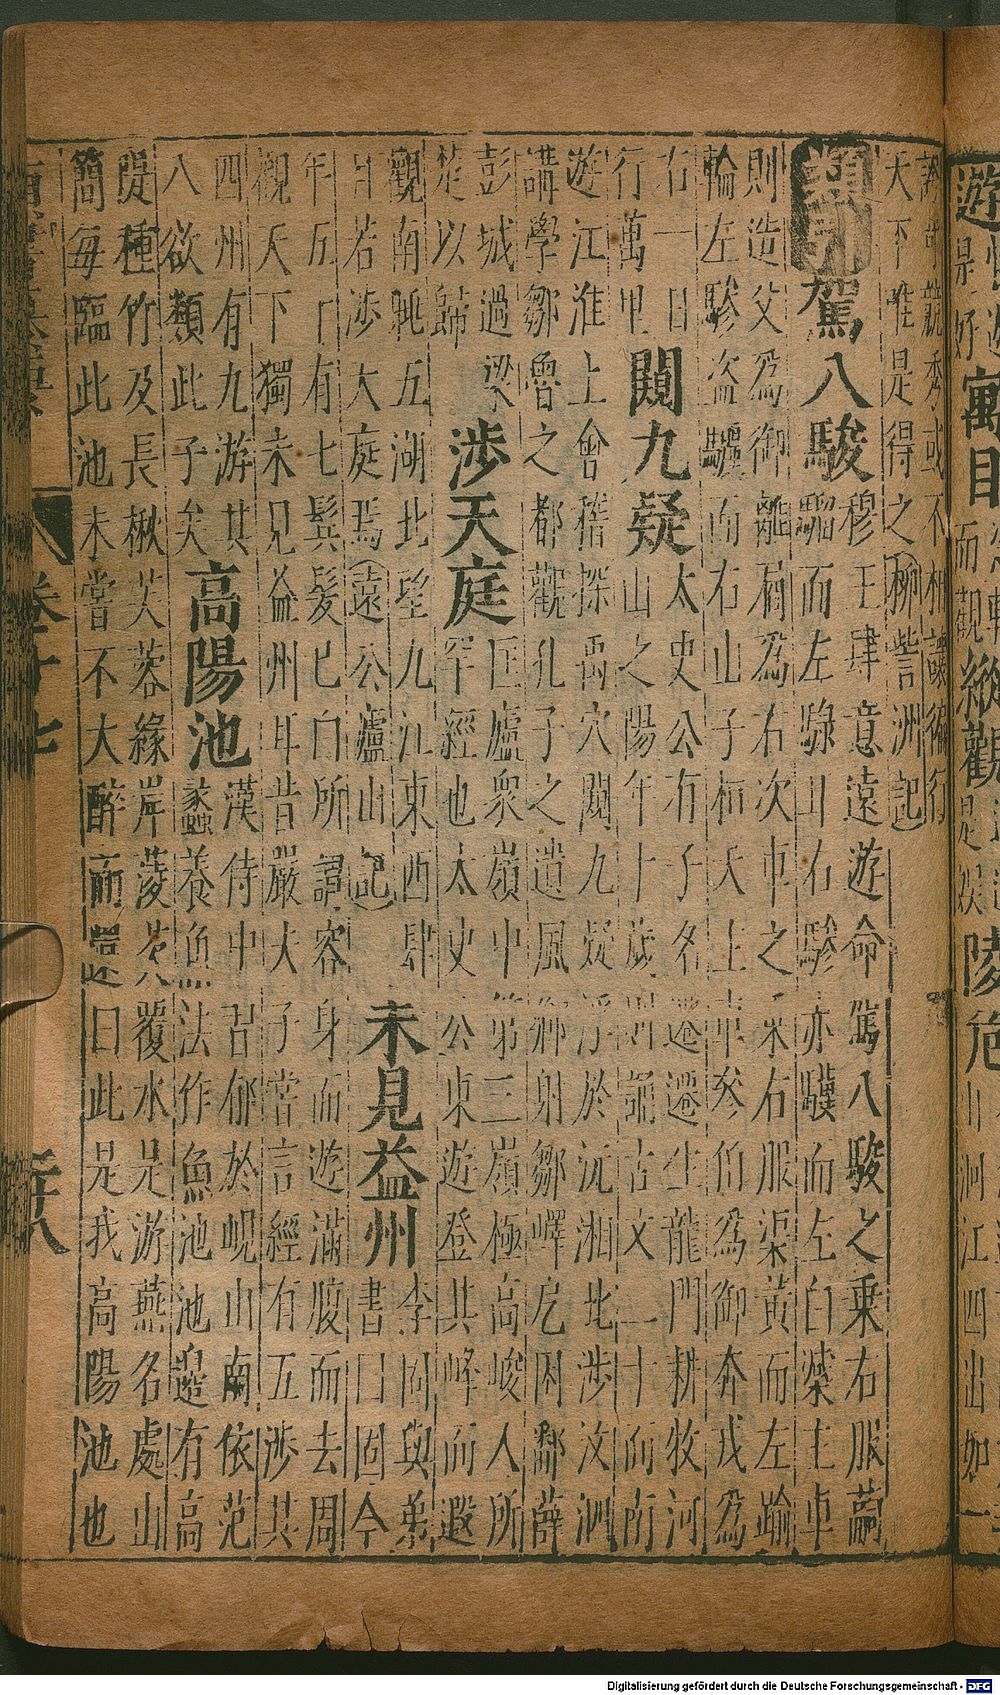 寓目
縱觀
陵危
川河江四出如
競秀或不相讓
天下唯是得之(柳訾洲記)
駕八駿
穆王肆意遠遊命駕八駿之乘右服
騮而左騄耳右驂赤驥而左白䉴主車
則造父為御離為右次車之乘右服渠黄而左踰
輪左驂盜驪而右山子栢夭主車參伯為御奔戎為
右一日
行萬里
闚九疑
太史公有子名遷遷生龍門耕牧河
山之陽年十歲則誦古文二十而南
遊江淮上會稽探禹穴闚九疑浮於沅湘北涉汶泗
講學鄒魯之都觀孔子之遺風鄉射鄒嶧戹困鄱薛
彭城過梁
楚以歸
涉天庭
匡廬衆嶺中第三嶺極高峻人所
罕經也太史公東遊登其峰而遐
觀南眺五湖北望九江東西肆
目若涉大庭焉(遠公廬山記)
未見益州
李固與弟
書曰固今
年五十有七鬂髮已白所謂容身而遊滿腹而去周
觀天下獨未見益州耳昔嚴夫子嘗言經有五涉其
四州有九游其
八欲類此子矣
高陽池
漢侍中習郁於峴山南依范
蠡養魚法作魚池池邉有高
隄種竹及長楸芙蓉緣岸菱芡覆水是游燕名處山
簡每臨此池未嘗不大醉而還曰此是我高陽池也
卷十七
Digitalisierung gefördert durch die Deutsche Forschungsgemeinschaft - DFG